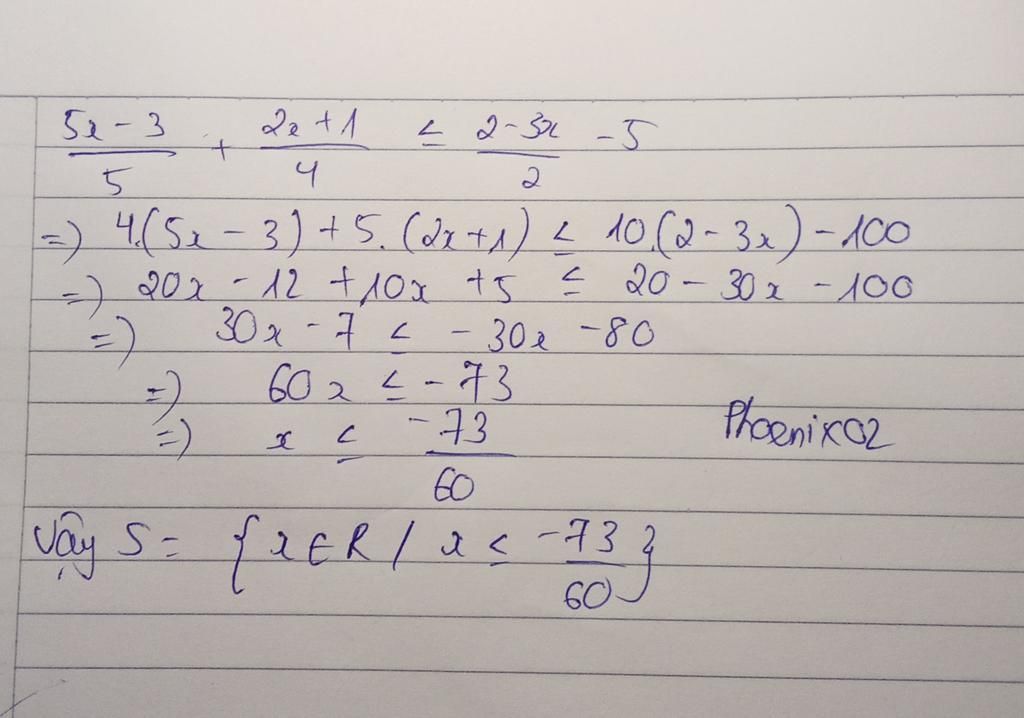 5x - 3 / 5 + 2x + 1 / 4 ≤ 2 - 3x / 2 - 5
=) 4.(5x - 3) + 5.(2x + 1) ≤ 10.(2 - 3x) - 100
=) 20x - 12 + 10x + 5 ≤ 20 - 30x - 100
=) 30x - 7 ≤ - 30x - 80
=) 60x ≤ - 73
=) x ≤ -73 / 60
Phoenix02
Vậy S = { x ∈ R / x ≤ -73 / 60 }